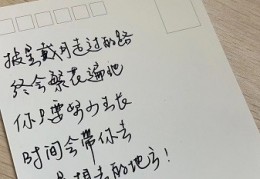 披星戴月走过的路
终会繁花遍地
你只要努力生长
时间会带你去
想去的地方！